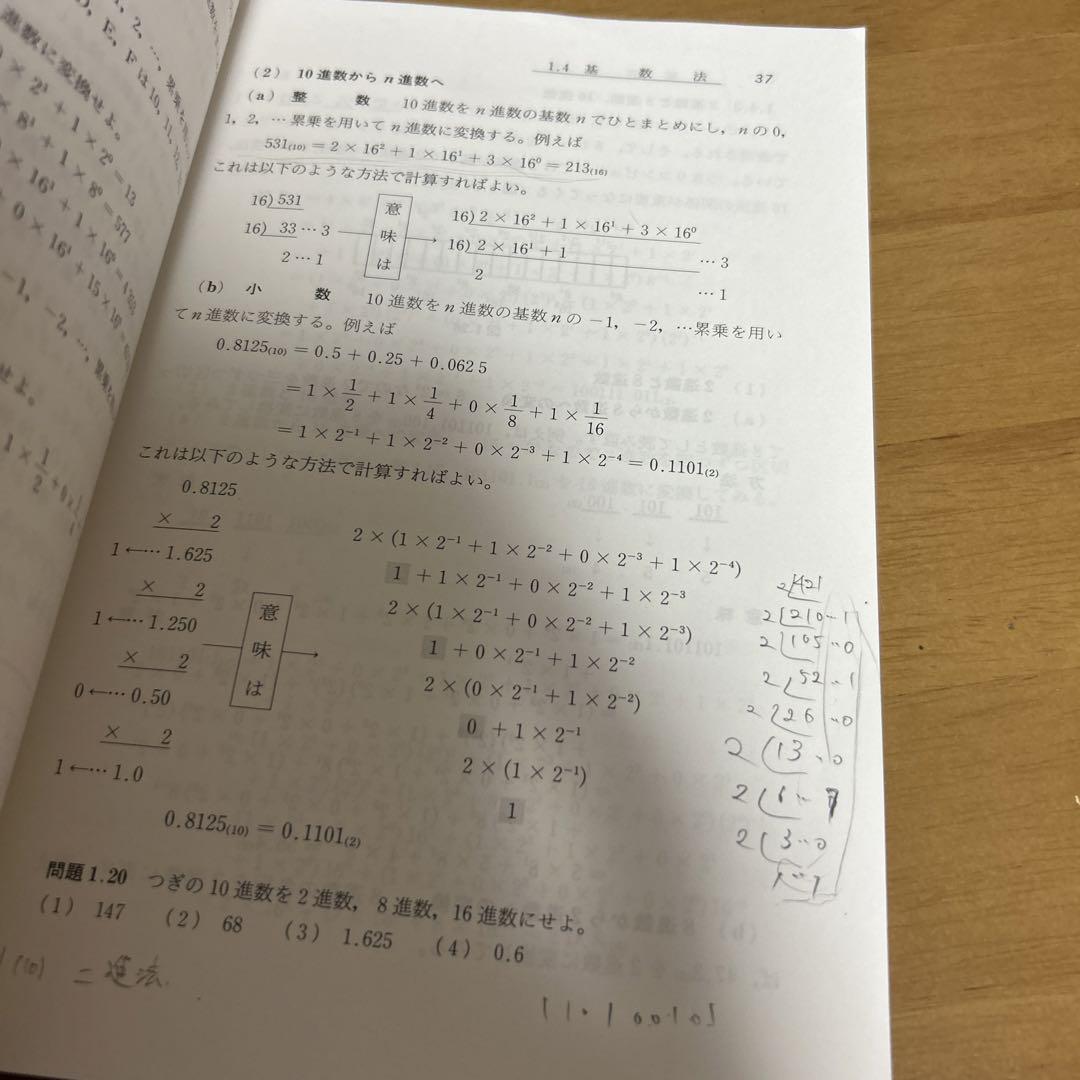 1.4 基 数 法 37
(2) 10進数からn進数へ
(a) 整 数 10進数をn進数の基数nでひとまとめにし，nの0,
1，2，…累乗を用いてn進数に変換する。例えば
531₍₁₀₎ = 2 × 16² + 1 × 16¹ + 3 × 16⁰ = 213₍₁₆₎
これは以下のような方法で計算すればよい。
16)531
16) 33 … 3
2 … 1
意味は
16)2 × 16² + 1 × 16¹ + 3 × 16⁰
16)2 × 16¹ + 1 … 3
2 … 1
(b) 小 数 10進数をn進数の基数nの −1，−2，…累乗を用い
てn進数に変換する。例えば
0.8125₍₁₀₎ = 0.5 + 0.25 + 0.0625
= 1 × 1/2 + 1 × 1/4 + 0 × 1/8 + 1 × 1/16
= 1 × 2⁻¹ + 1 × 2⁻² + 0 × 2⁻³ + 1 × 2⁻⁴ = 0.1101₍₂₎
これは以下のような方法で計算すればよい。
0.8125
× 2
1 ←… 1.625
× 2
1 ←… 1.250
× 2
0 ←… 0.50
× 2
1 ←… 1.0
意味は
2 × (1 × 2⁻¹ + 1 × 2⁻² + 0 × 2⁻³ + 1 × 2⁻⁴)
1 + 1 × 2⁻¹ + 0 × 2⁻² + 1 × 2⁻³
2 × (1 × 2⁻¹ + 0 × 2⁻² + 1 × 2⁻³)
1 + 0 × 2⁻¹ + 1 × 2⁻²
2 × (0 × 2⁻¹ + 1 × 2⁻²)
0 + 1 × 2⁻¹
2 × (1 × 2⁻¹)
1
0.8125₍₁₀₎ = 0.1101₍₂₎
2)421
2)210…1
2)105…0
2)52…1
2)26…0
2)13…0
2)6…1
2)3…0
1…1
問題1.20 つぎの10進数を2進数，8進数，16進数にせよ。
(1) 147 (2) 68 (3) 1.625 (4) 0.6
(10) 二進法